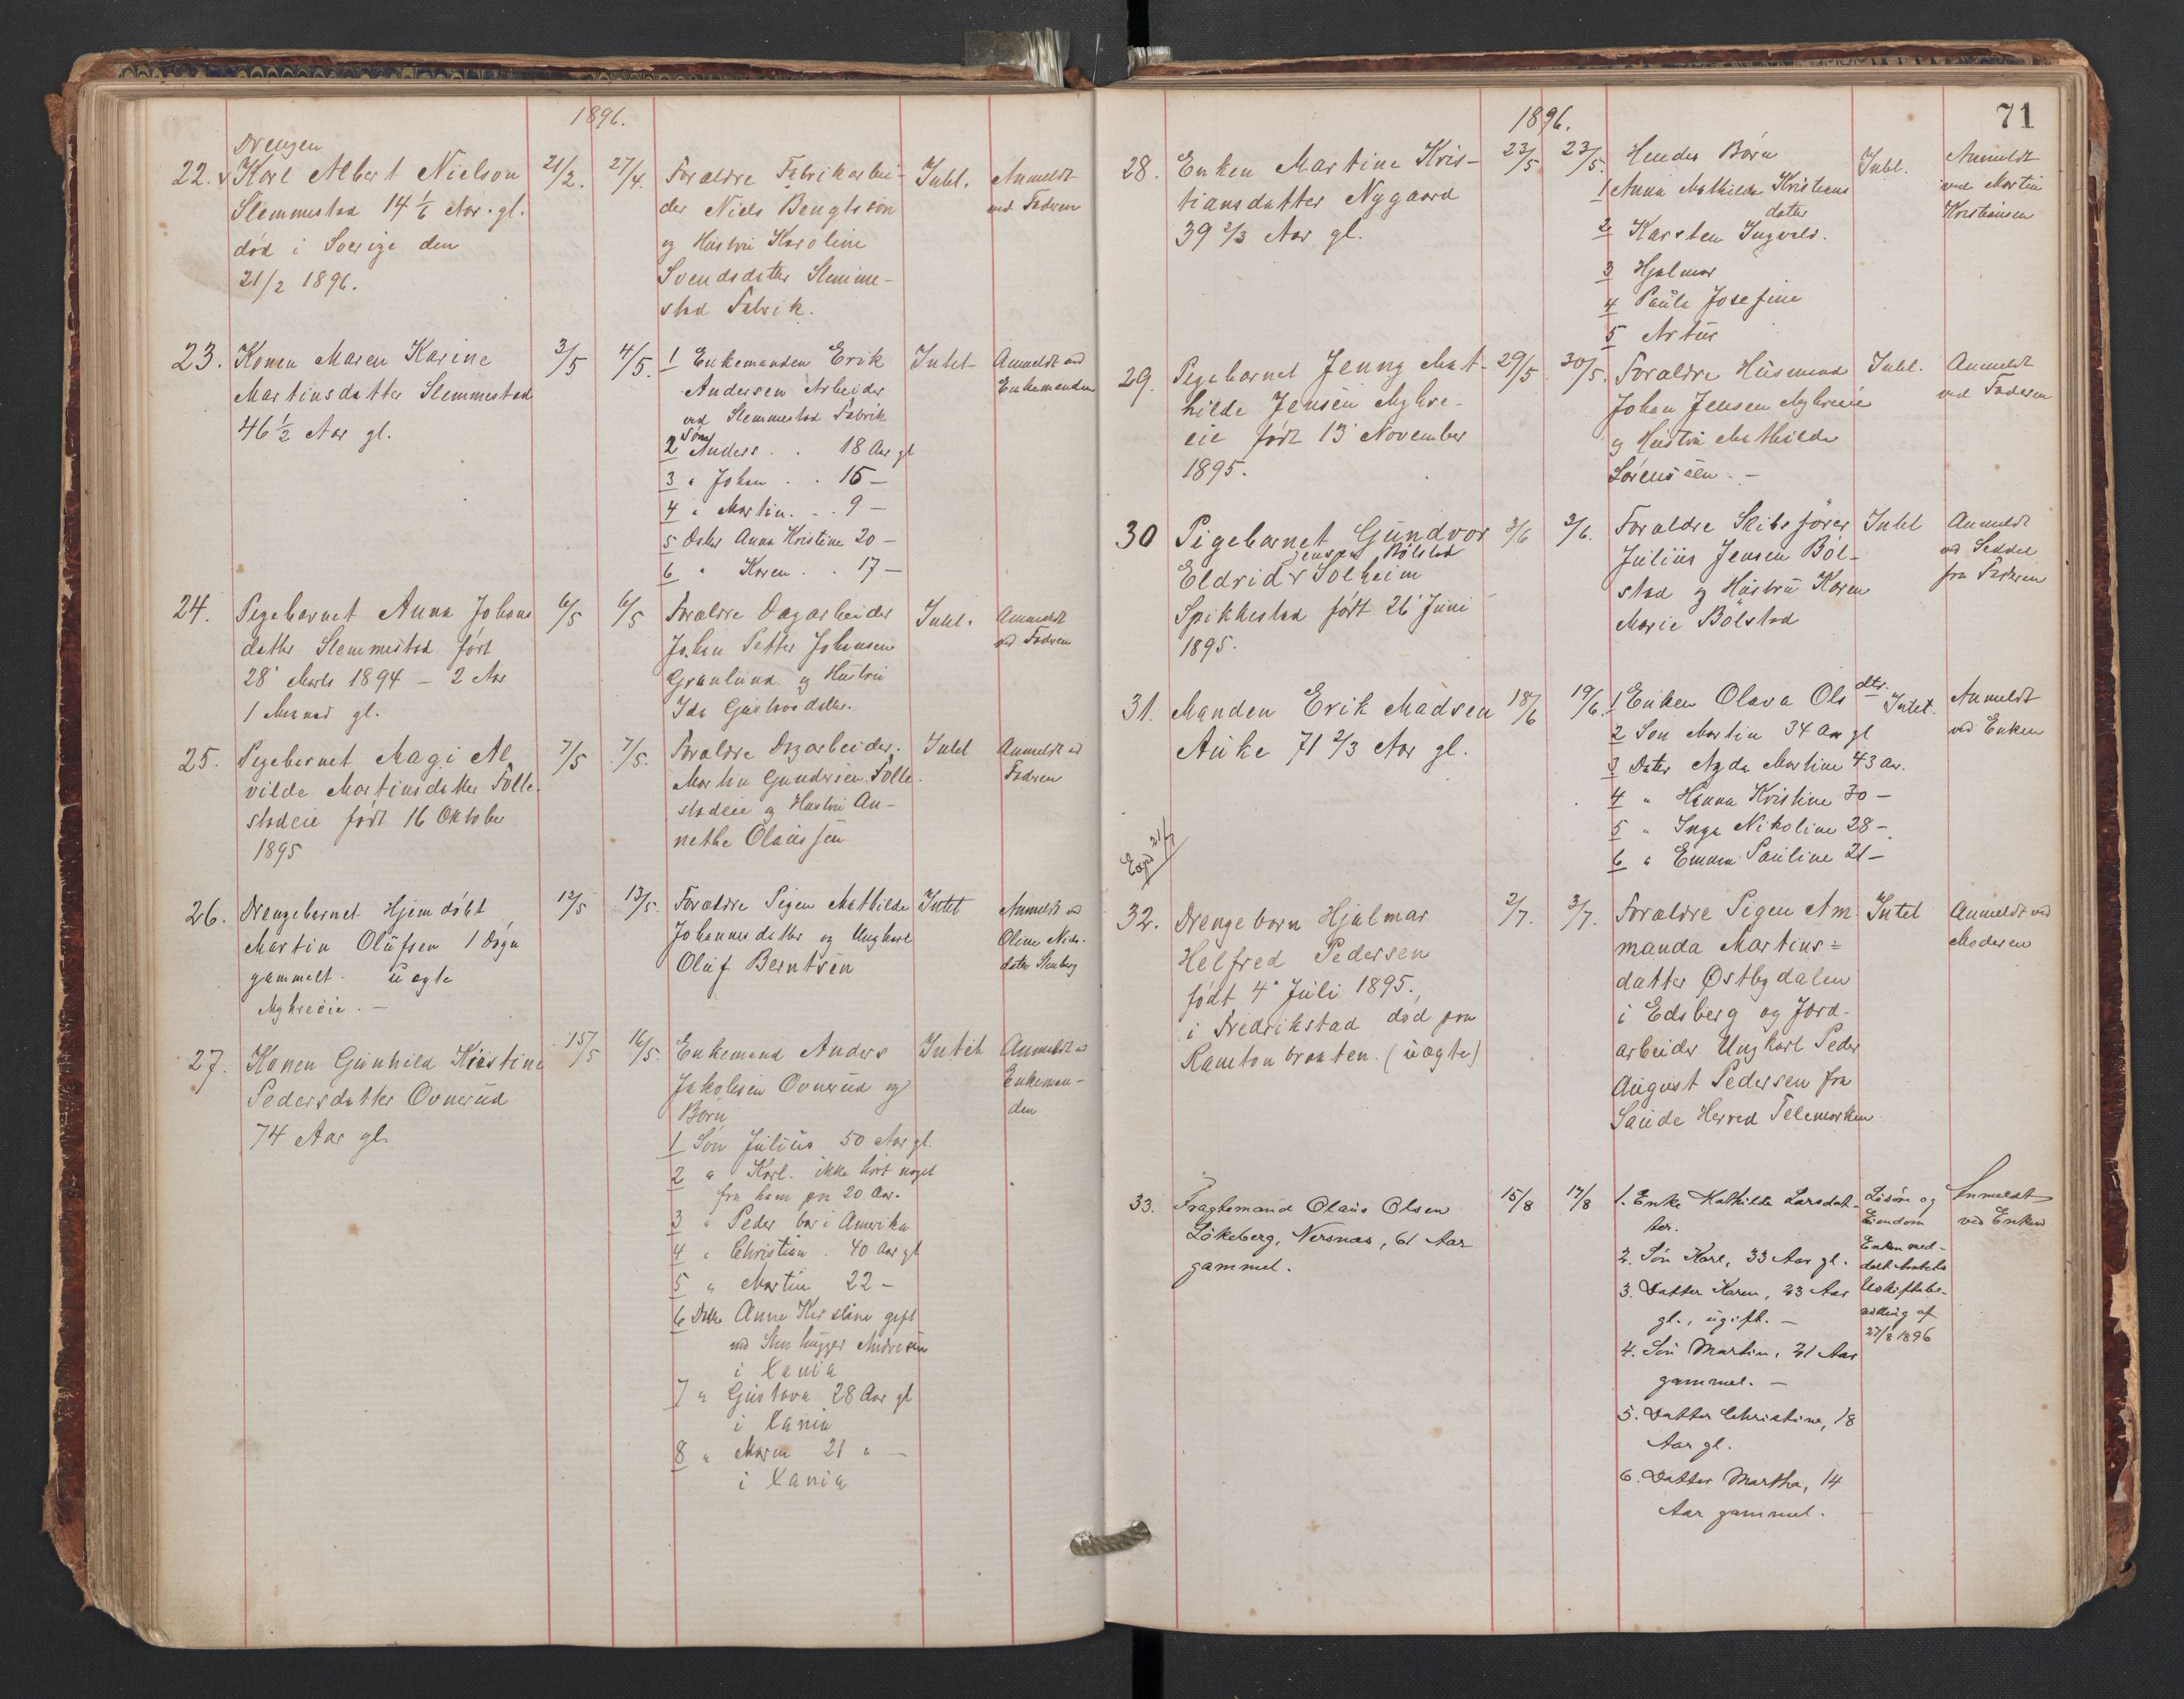 1896.
Drengen
22. Karl Albert Nielson
Slemmestad 14 1/6 Aar. gl.
död i Sverige den
21/2 1896.
21/2.
27/4.
Forældre Fabrikarbei-
der Niels Bengtsson
og Hustru Karoline
Svendsdatter Slemme-
stad Fabrik.
Intet.
Anmeldt
ved Faderen
23. Konen Maren Karine
Martinsdatter Slemmestad
46 1/2 Aar gl.
3/5
4/5.
1 Enkemanden Erik
Andersen Arbeider
ved Slemmestad Fabrik
Søn
2 Anders . . 18 Aar gl
3 " Johan . . 15 –
4 " Martin. . . 9 –
5 Dater Anna Kristine 20 –
6 " Karen . . 17 –
Intet
Anmeldt ved
Enkemanden
24. Pigebarnet Anna Johans
datter Slemmestad født
28' Marts 1894 – 2 Aar
1 Maaned gl.
6/5
6/5
Forældre Dagarbeider
Johan Petter Johansen
Granlund og Hustru
Ida Gustavsdatter.
Intet.
Anmeldt
ved Faderen
25. Pigebarnet Magi Al
vilde Martinsdatter Følle-
stadeie født 16 Oktober
1895
7/5
7/5.
Forældre Dagarbeider.
Martin Gundersen Følle
stadeie og Hustru An-
nethe Olaussen
Intet
Anmeldt ved
Faderen
26. Drengebarnet Hjemdøbt
Martin Olufsen 1 Døgn
gammelt. uægte
Myhreeie. –
12/5
13/5.
Forældre Pigen Mathilde
Johannesdatter og Ungkarl
Oluf Berntsen
Intet
Anmeldt ved
Oline Niels-
dater
27. Konen Gunhild Kristine
Pedersdatter Ovnerud
74 Aar gl.
15/5
16/5.
Enkemand Anders
Jakobsen Ovnerud og
Børn
1 Søn Julius 50 Aar gl.
2 " Karl. ikke hørt noget
fra ham på 20 Aar.
3 " Peder bor i Amerika
4 " Christian . 40 Aar gl
5 " Martin 22 –
6 Datter Anne Kirstine gift
med Stenhugger Andresen
i Xania
7 " Gustava 28 Aar gl
i Xania
8 " Maren 21 " –
i Xania
Intet
Anmeldt ved
Enkeman-
den
71
1896.
28. Enken Martine Kris-
tiansdatter Nygaard
39 2/3 Aar gl.
23/5
23/5.
Hendes Børn
1 Anna Mathilde Kristians
dater
2 Karsten Ingvald.
3 Hjalmar
4 Paula Josefine
5 Artur
Intet.
Anmeldt
ved Martin
Kristiansen
29. Pigebarnet Jenny Mat-
hilde Jensen Myhre-
eie født 13' November
1895.
29/5
30/5.
Forældre Husmand
Johan Jensen Myhreeie
og Hustru Mathilde
Sørenssen. –
Intet.
Anmeldt
ved Faderen
30 Pigebarnet Gundvor
Jensen Bölstad
Eldrid Solheim
Spikkestad født 26' Juni
1895.
2/6
3/6.
Forældre Skibsfører
Julius Jensen Böl-
stad og Hustru Karen
Marie Bölstad
Intet
Anmeldt
ved Seddel
fra Faderen
31. Manden Erik Madsen
Auke 71 2/3 Aar gl.
18/6
19/6.
1 Enken Olava Ols dtr.
2 Søn Martin 34 Aar gl
3 Dater Agda Martine 43 Aar.
4 " Hanna Kristine 30 –
5 " Inga Nikoline 28 –
6 " Emma Pauline 21 –
Intet.
Anmeldt
ved Enken
21/7
32. Drengebarn Hjalmar
Helfred Pedersen
født 4' Juli 1895.
i Fredrikstad död paa
Ramtonbraaten. (uægte)
2/7.
3/7.
Forældre Pigen Am
manda Martins=
datter Østbydalen
i Edsberg og Jord-
arbeider Ungkarl Peder
August Pedersen fra
Saude Herred Telemarken
Intet
Anmeldt ved
Moderen
33. Fragtemand Olaus Olsen
Lökeberg, Nersnæs, 61 Aar
gammel.
15/8
17/8
1. Enke Mathilde Larsdat-
ter.
2. Søn Karl, 33 Aar gl.
3. Datter Karen, 23 Aar
gl., ugift. –
4. Søn Martin, 21 Aar
gammel. –
5. Datter Christine, 18
Aar gl.
6. Datter Martha, 14
Aar gammel.
Løsøre og
Eiendom
Enken med-
delt
Uskiftebe-
villing af
27/8 1896
Anmeldt
ved Enken